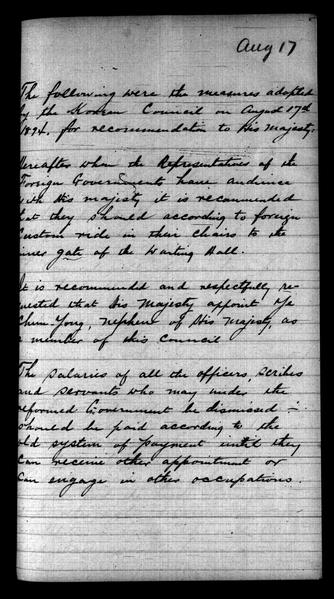 Aug 17
The following were the measures adopted
by the Korean Council on August 17th
1894, for recommendation to His Majesty.
Hereafter when the Representatives of the
Foreign Governments have audience
with His Majesty it is recommended
that they should according to foreign
custom ride in their chairs to the
inner gate of the Waiting Hall.
It is recommended and respectfully re-
quested that His Majesty appoint Ye
Chun-Yong, nephew of His Majesty, as
a member of this Council
The salaries of all the officers, scribes
and servants who may under the
reformed Government be dismissed -
should be paid according to the
old system of payment until they
can receive other appointment or
can engage in other occupations.